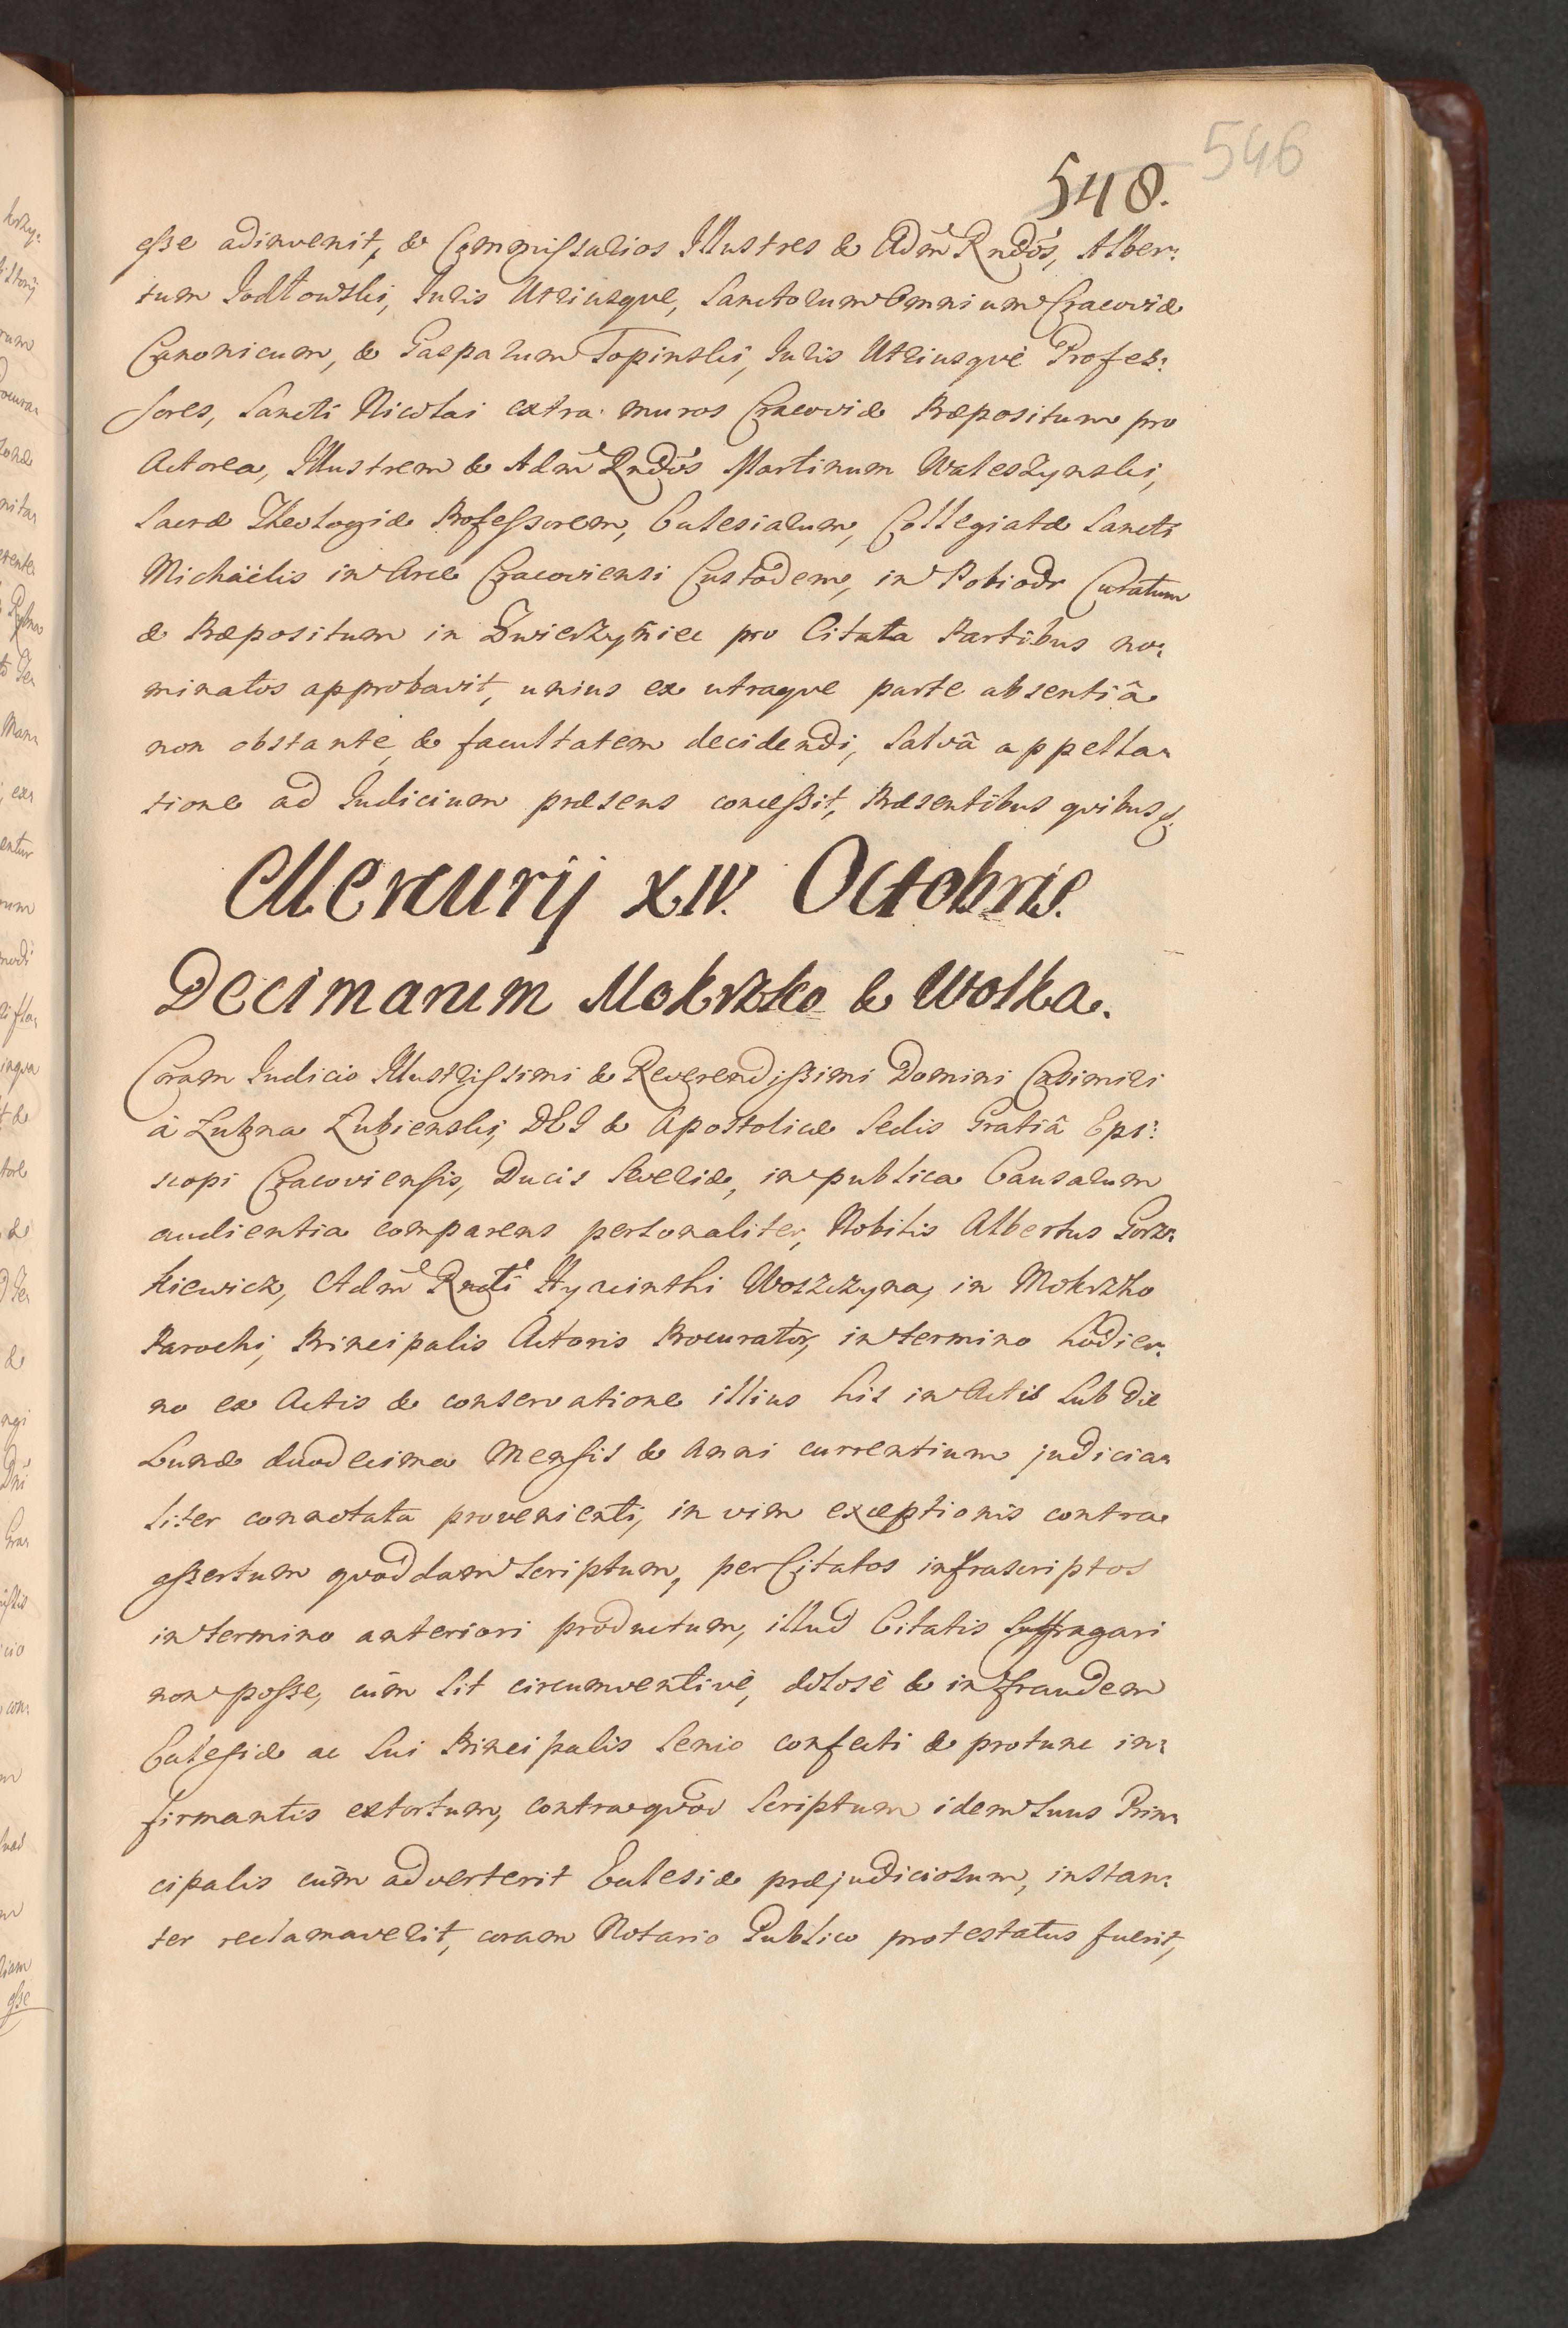 546
548.
esse adinvenit, & Commissarios Illustres & Adm Rndos, Alber:
tum Jodłowski, Iuris Utriusque, Sanctorum Omnium Cracoviæ
Canonicum, & Gasparum Topinski, Iuris Utriusquè Profes:
sores, Sancti Nicolai extra muros Cracoviæ Præpositum pro
Actorea, Illustrem & Adm Rndos Martinum Waleszynski,
Sacræ Theologiæ Professorem, Ecclesiarum, Collegiatæ Sancti
Michaëlis in Arce Cracoviensi Custodem, in Pobiedr Curatum
& Præpositum in Zwierzyniec pro Citata Partibus no:
minatos approbavit, unius ex utraque parte absentiâ
non obstante, & facultatem decidendi, Salvâ appella:
tione ad Iudicium præsens concessit, Præsentibus quibus &.
Mercurij XIV. Octobris.
Decimarum Mokrzko & Wolka.
Coram Iudicio Illustrissimi & Reverendissimi Domini Casimiri
à Łubna Łubienski, DEI & Apostolicæ Sedis Gratiâ Epi:
scopi Cracoviensis, Ducis Severiæ, in publica Causarum
audientia comparens personaliter, Nobilis Albertus Gorz:
kiewicz, Adm Rndi Hyacinthi Woszczyna, in Mokrzko
Parochi, Principalis Actoris Procurator, in termino hodier:
no ex Actis & conservatione illius his in Actis sub die
Lunæ duodecima Mensis & Anni currentium judicia:
liter connotata provenienti, in vim exceptionis contra
assertum quoddam Scriptum, per Citatos infrascriptos
in termino anteriori productum, illud Citatis suffragari
non posse, cùm sit circumventivè, dolosè & in fraudem
Ecclesiæ ac sui Principalis senio confecti & protunc in:
firmantis extortum, contra quod Scriptum idem suus Prin:
cipalis cùm adverterit Ecclesiæ præjudiciosum, instan:
ter reclamaverit, coram Notario Publico protestatus fuerit,